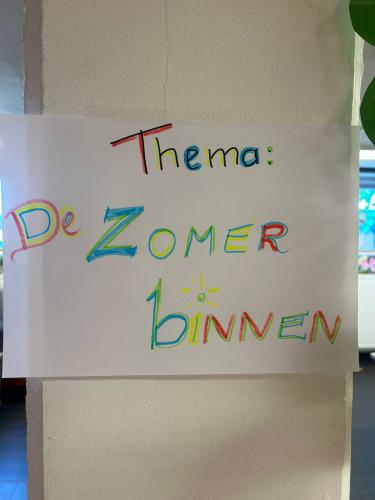 Thema:
De ZOMER
biNNEN